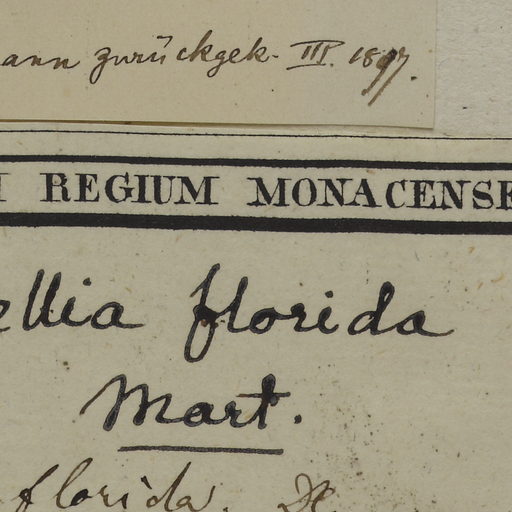 ann zurückgek. III. 1897.
REGIUM MONACENSE
ellia florida
Mart.
florida.